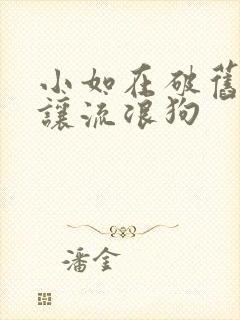 小如在破舊
讓流浪狗
潘金